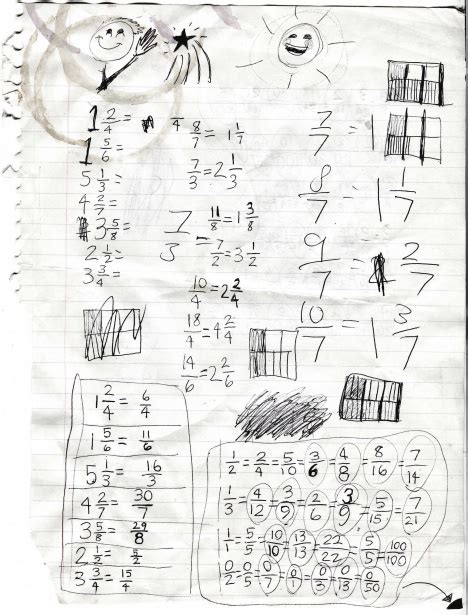 1 2/4 =
1 5/6 =
5 1/3 =
4 2/7 =
3 5/8 =
2 1/2 =
3 3/4 =
4 8/7 = 1 1/7
7/3 = 2 1/3
11/8 = 1 3/8
7/3
7/2 = 3 1/2
10/4 = 2 2/4
18/4 = 4 2/4
14/6 = 2 2/6
7/7 = 1
8/7 = 1 1/7
9/7 = 1 2/7
10/7 = 1 3/7
1 2/4 = 6/4
1 5/6 = 11/6
5 1/3 = 16/3
4 2/7 = 30/7
3 5/8 = 29/8
2 1/2 = 5/2
3 3/4 = 15/4
1/2 = 2/4 = 5/10 = 3/6 = 4/8 = 8/16 = 7/14
1/3 = 4/12 = 3/9 = 2/6 = 3/9 = 5/15 = 7/21
1/1 = 5/5 = 10/10 = 13/13 = 22/22 = 5/5 = 100/100
0/2 = 0/5 = 0/7 = 0/1 = 0/3 = 0/13 = 0/50